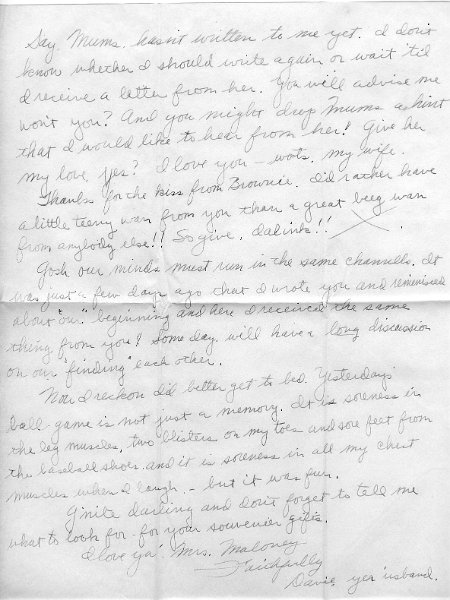 Say, Mums. hasn't written to me yet. I don't
know whether I should write again or wait 'til
I receive a letter from her. You will advise me
won't you? And you might drop Mums a hint
that I would like to hear from her! Give her
my love, yes? I love you - wots. my wife.
Thanks for the kiss from Brownie. I'd rather have
a little teeny wan from you than a great beeg wan
from anybody else!! So give, dalink!!
Gosh our minds must run in the same channels. It
was just a few days ago that I wrote you and reminisced
about "our" beginning and here I received the same
thing from you! Some day will have a long discussion
on our "finding" each other.
Now I reckon I'd better get to bed. Yesterdays'
ball game is not just a memory. It is soreness in
the leg muscles, two blisters on my toes and sore feet from
the baseball shoes and it is soreness in all my chest
muscles when I laugh. - but it was fun.
G'nite darling and don't forget to tell me
what to look for - for your souvenier gifts.
I love ya' Mrs. Maloney
Faithfully
Davie, yer 'usband.